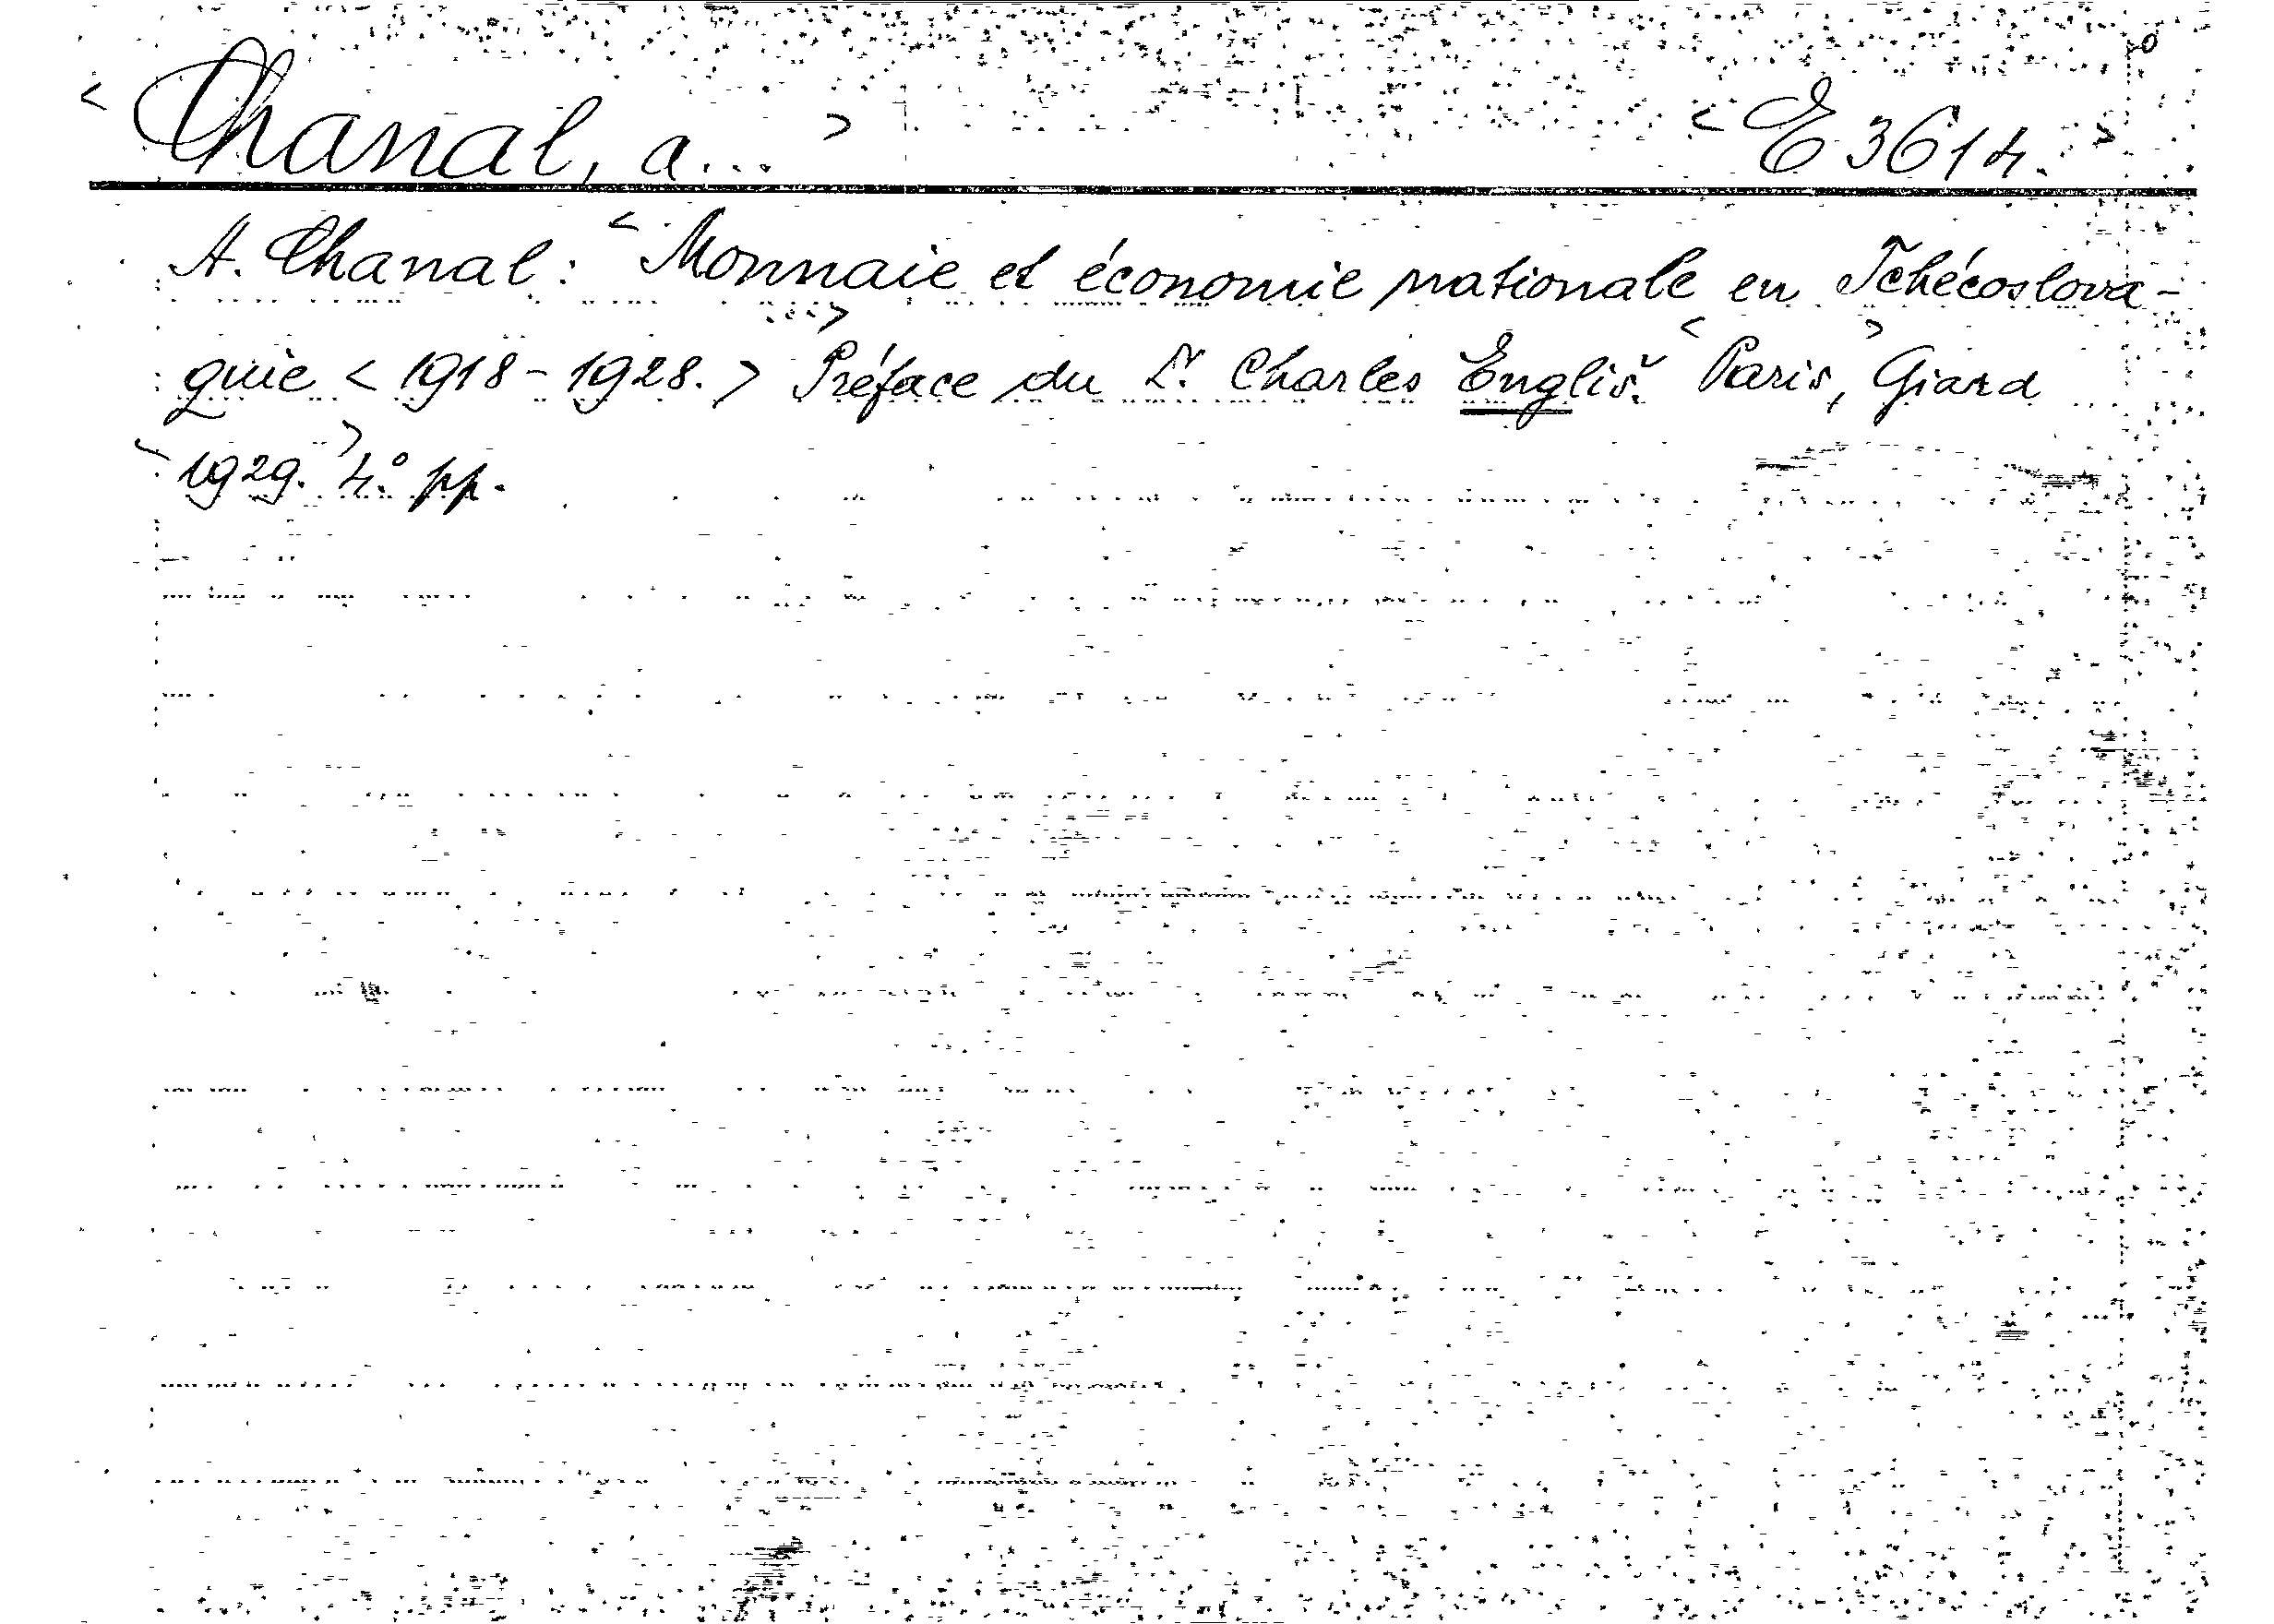 < Chanal, A... > < E 3614. >
A. Chanal: < Monnaie et économie nationale en Tchécoslova-
quie < 1918-1928. > Préface du Dr. Charles Engliš. < Paris, > Giard
< 1929. > 4.° pp.